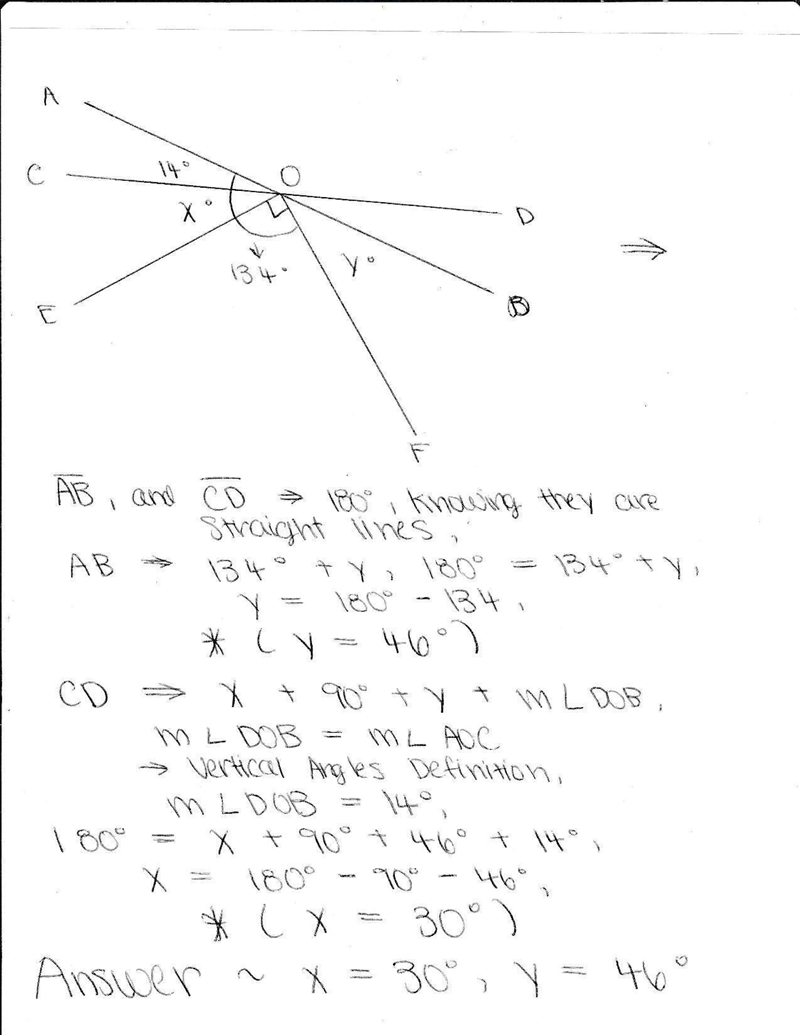 A
14°
O
C
x°
D
⇒
134°
y°
E
B
F
A̅B̅, and C̅D̅ ⇒ 180°, knowing they are
straight lines,
AB → 134° + y, 180° = 134° + y,
y = 180° - 134,
* ( y = 46° )
CD ⇒ x + 90° + y + m∠DOB,
m∠DOB = m∠AOC
→ Vertical Angles Definition,
m∠DOB = 14°,
180° = x + 90° + 46° + 14°,
x = 180° - 90° - 46°,
* ( x = 30° )
Answer ~ x = 30°, y = 46°